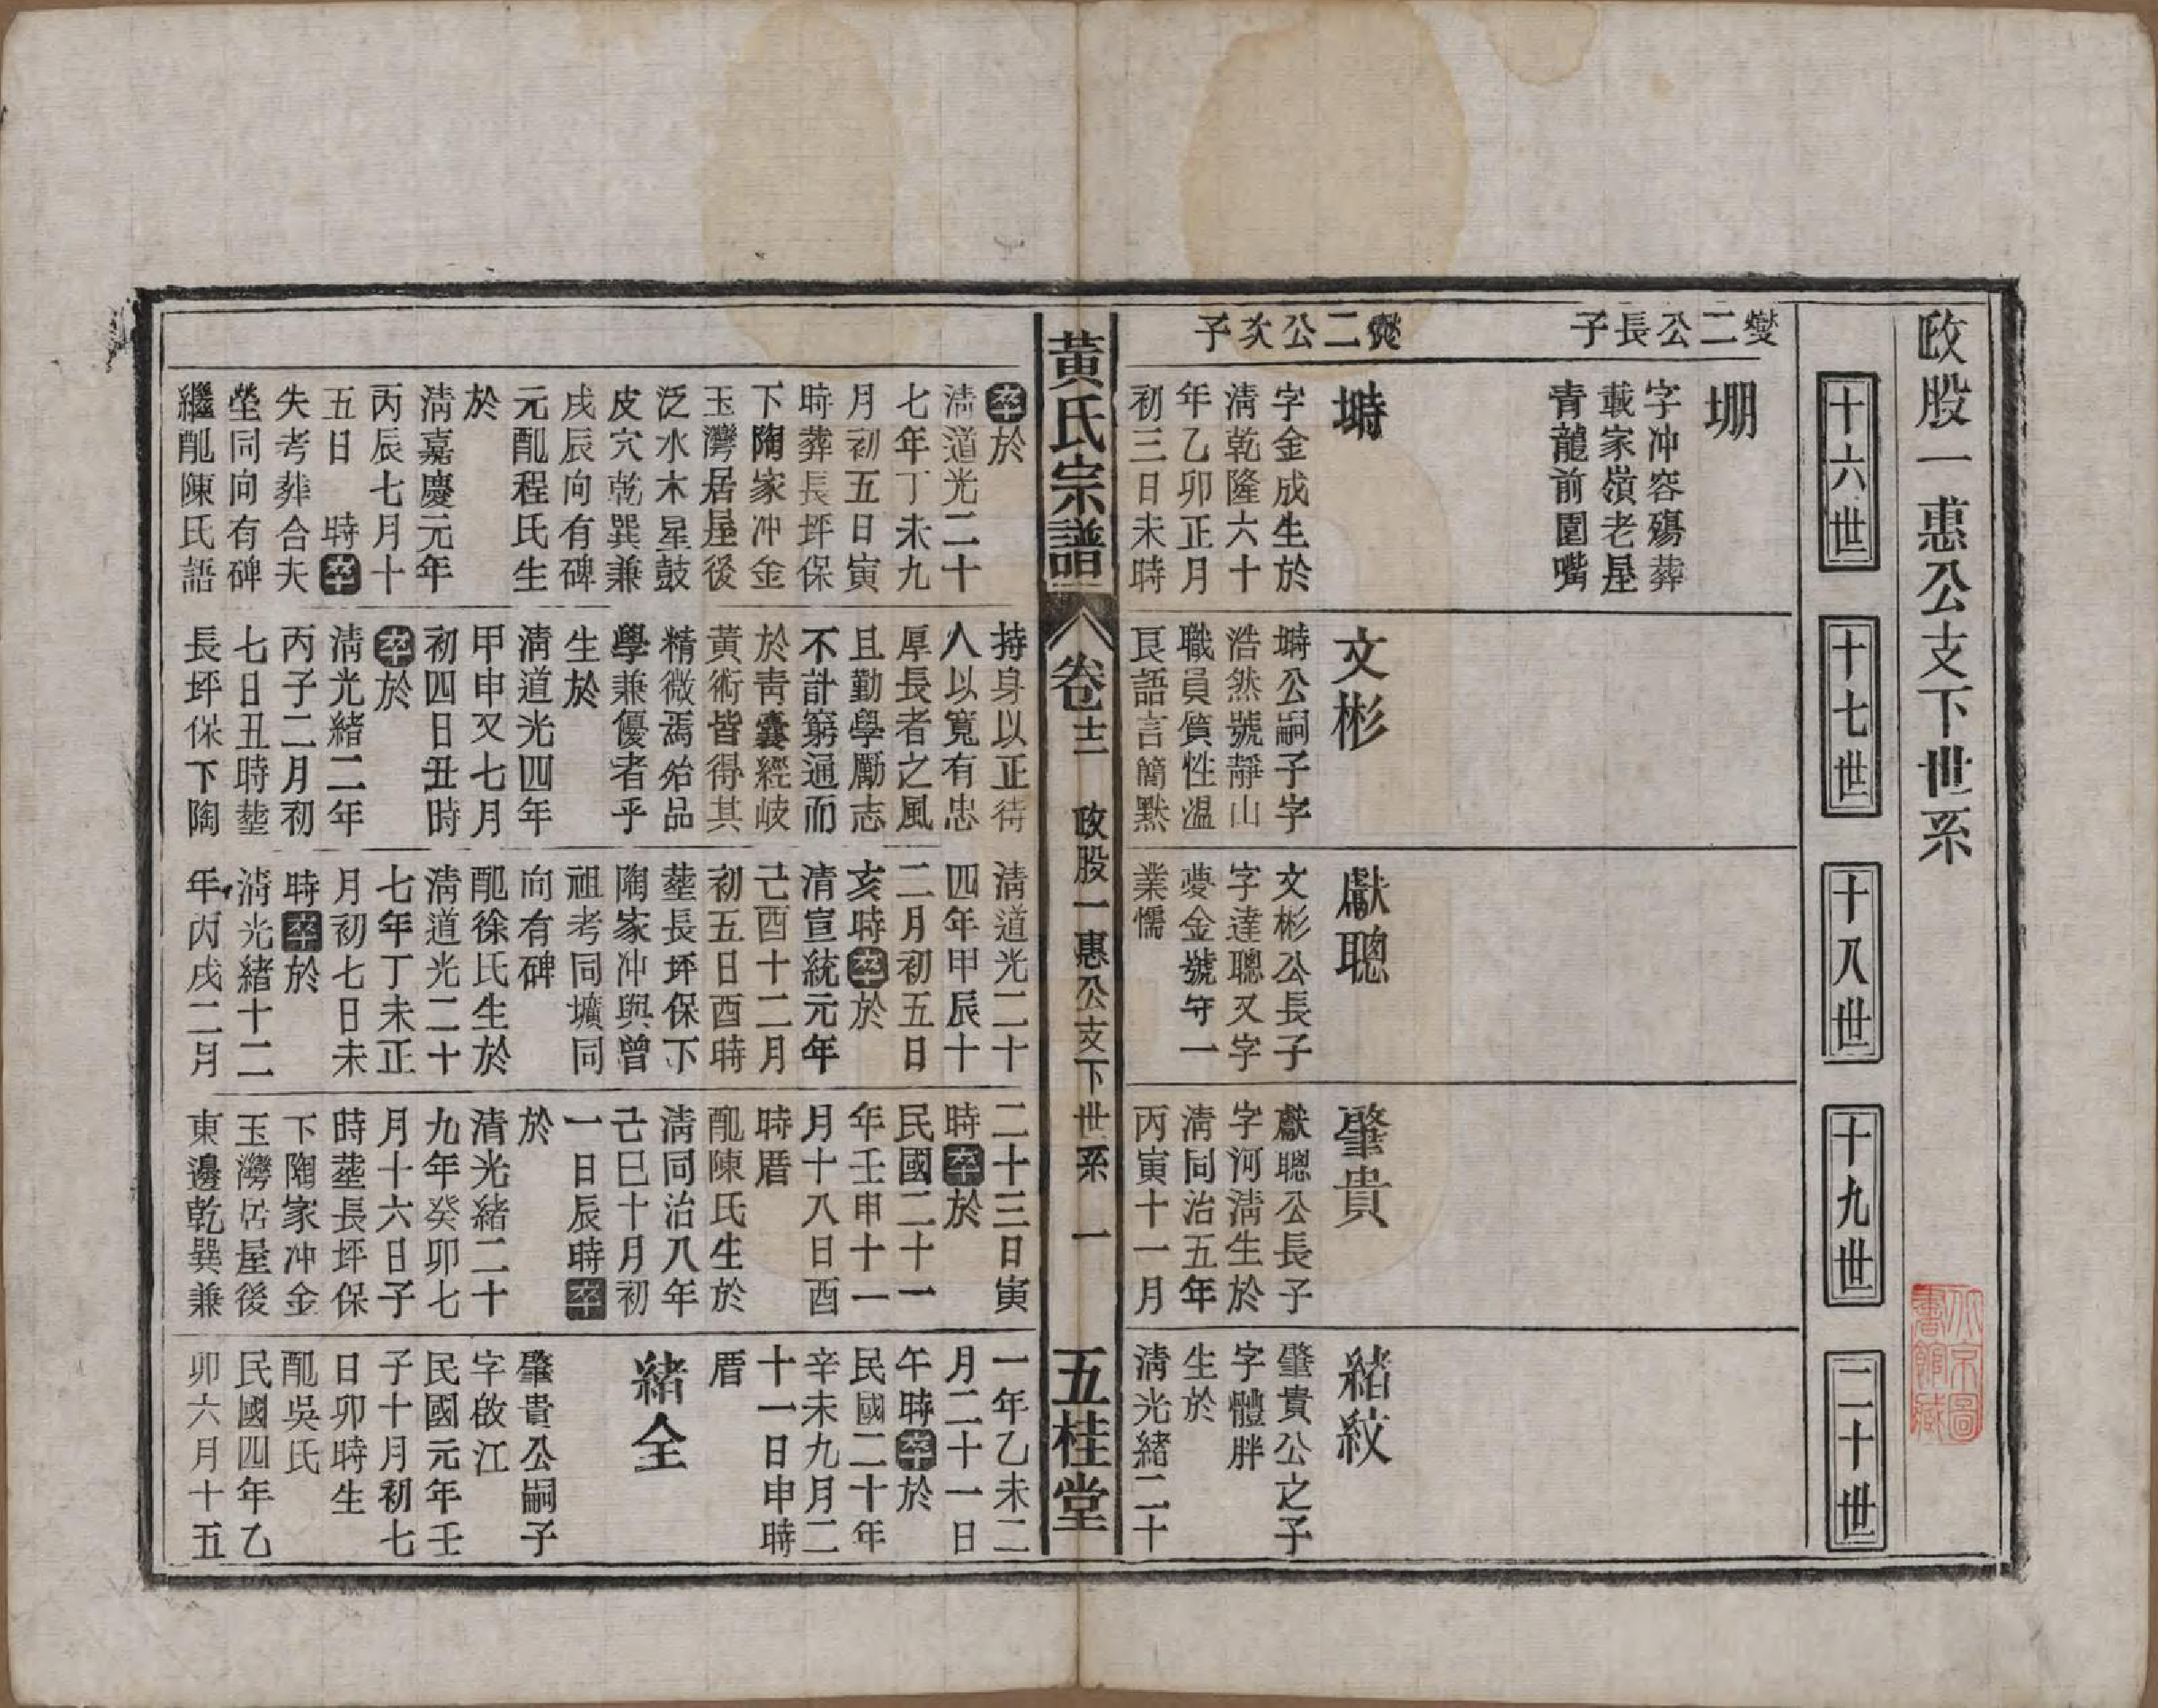 政股一惠公支下世系
十六世
十七世
十八世
十九世
二十世
燮二公長子
堋
字冲容殤葬
載家嶺老屋
青龍前園嘴
燮二公次子
塒
字金成生於
淸乾隆六十
年乙卯正月
初三日未時
文彬
塒公嗣子字
浩然號靜山
職員質性溫
良語言簡默
獻聰
文彬公長子
字達聰又字
夢金號守一
業懦
肇貴
獻聰公長子
字河淸生於
淸同治五年
丙寅十一月
緒紋
肇貴公之子
字體胖
生於
淸光緒二十
黃氏宗譜
卷十二
政股一惠公支下世系
一
五桂堂
卒於
淸道光二十
七年丁未九
月初五日寅
時葬長坪保
下陶家冲金
玉灣居屋後
泛水木星鼓
皮穴乾巽兼
戌辰向有碑
元配程氏生
於
淸嘉慶元年
丙辰七月十
五日 時卒
失考葬合夫
塋同向有碑
繼配陳氏語
持身以正待
人以寬有忠
厚長者之風
且勤學勵志
不計窮通而
於靑囊經岐
黃術皆得其
精微焉殆品
學兼優者乎
生於
淸道光四年
甲申又七月
初四日丑時
卒於
淸光緒二年
丙子二月初
七日丑時塟
長坪保下陶
淸道光二十
四年甲辰十
二月初五日
亥時卒於
淸宣統元年
己酉十二月
初五日酉時
塟長坪保下
陶家冲與曾
祖考同壙同
向有碑
配徐氏生於
淸道光二十
七年丁未正
月初七日未
時卒於
淸光緒十二
年丙戌二月
二十三日寅
時卒於
民國二十一
年壬申十一
月十八日酉
時厝
配陳氏生於
淸同治八年
己巳十月初
一日辰時卒
於
淸光緒二十
九年癸卯七
月十六日子
時塟長坪保
下陶家冲金
玉灣居屋後
東邊乾巽兼
一年乙未二
月二十一日
午時卒於
民國二十年
辛未九月二
十一日申時
厝
緒全
肇貴公嗣子
字啟江
民國元年壬
子十月初七
日卯時生
配吳氏
民國四年乙
卯六月十五